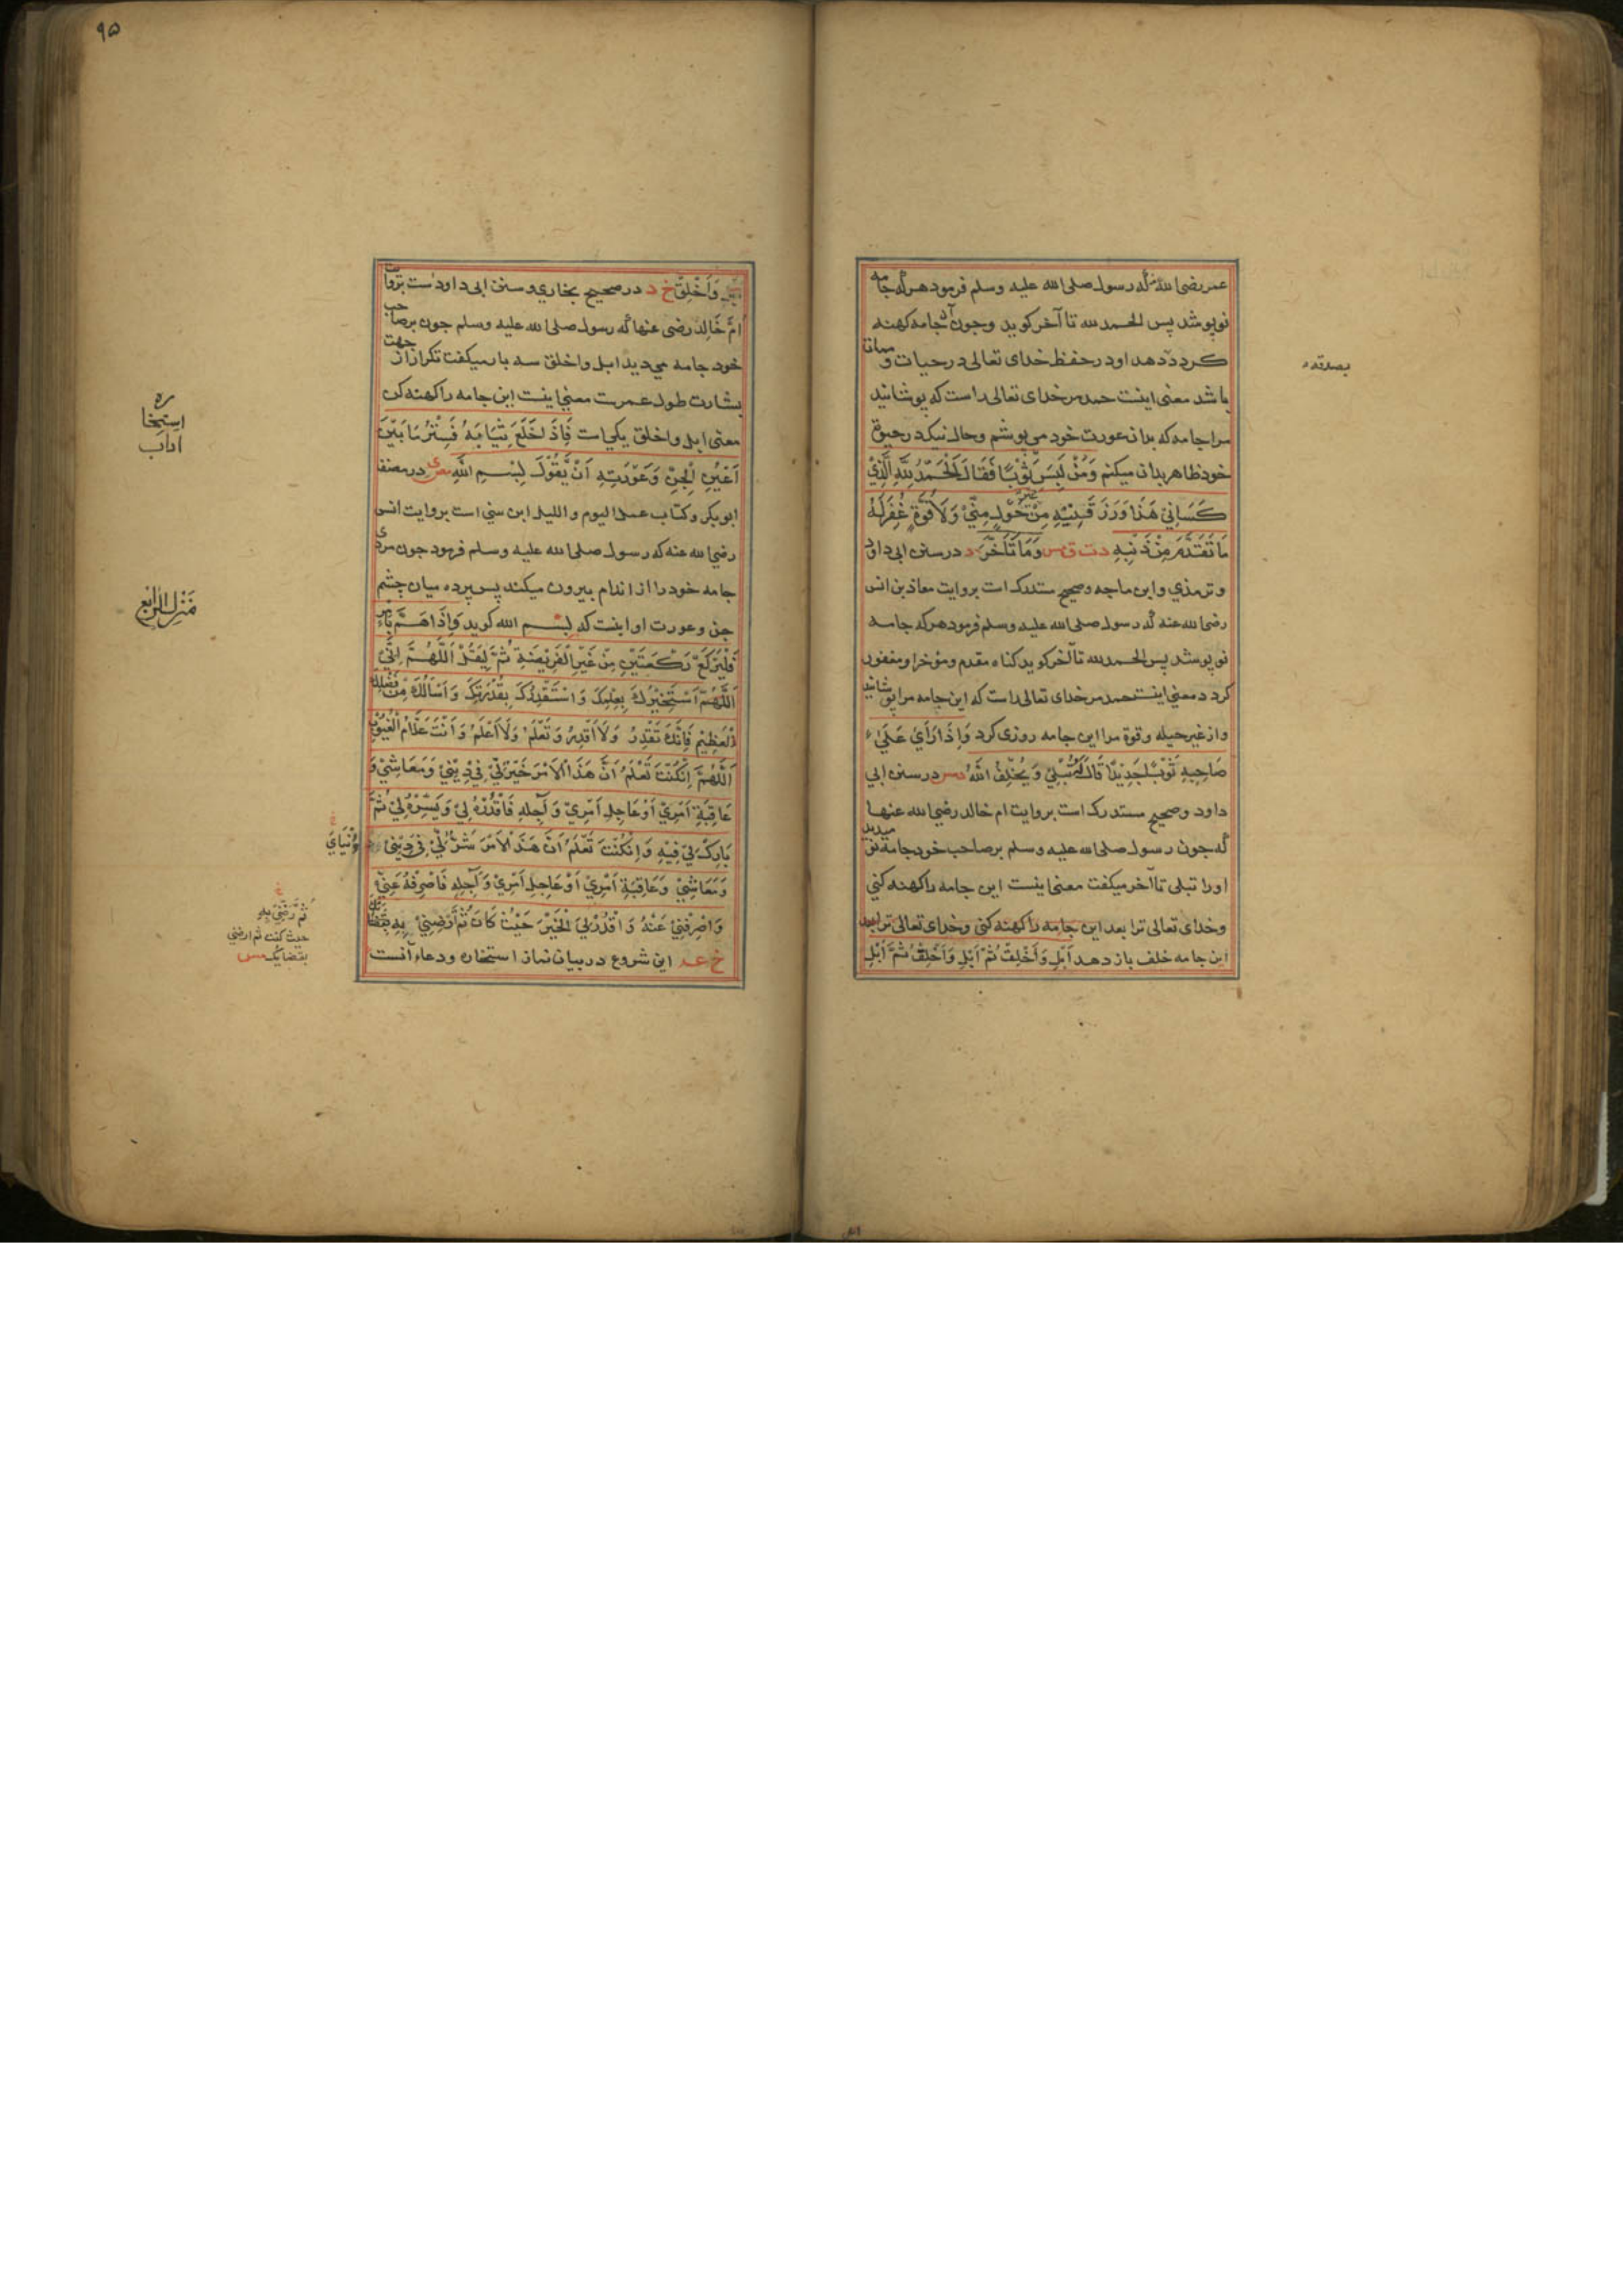 عمر رضی الله عنه که رسول صلی الله علیه وسلم فرمود هرکه جامه
نو پوشد پس الحمد لله تا آخر کوید وجون آن جامه کهنه
کردد بدهد او در حفظ خدای تعالی در حیات و مماتا
باشد معنی اینست حمد مر خدای تعالی راست که پوشانید
مرا جامه که بدان عورت خود می پوشم وحال نیک در حیوة
خود ظاهر بدان میکنم وَمَنْ لَبِسَ ثَوْبًا فَقَالَ اَلْحَمْدُ لِلّٰهِ الَّذِيْ
كَسَانِيْ هَذَا وَرَزَقَنِيْهِ مِنْ غَيْرِ حَوْلٍ مِنِّيْ وَلَا قُوَّةٍ غُفِرَ لَهُ
مَا تَقَدَّمَ مِنْ ذَنْبِهِ دت ق مس وَمَا تَأَخَّرَ د در سنن ابی داود
وترمذي وابن ماجه وصحیح مستدرک است بروایت معاذ بن انس
رضی الله عنه که رسول صلی الله علیه وسلم فرمود هرکه جامه
نو پوشد پس الحمد لله تا آخر کوید کناه مقدم ومؤخر او مغفور
کردد معنی اینست حمد مر خدای تعالی راست که این جامه مرا پوشانید
واز غیر حیله وقوة مرا این جامه روزی کرد وَاِذَا رَاٰي عَلٰي
صَاحِبِهِ ثَوْبًا جَدِيْدًا قَالَ لَهُ تُبْلِيْ وَيُخْلِفُ اللّٰهُ دمس در سنن ابی
داود وصحیح مستدرک است بروایت ام خالد رضی الله عنها
که جون رسول صلی الله علیه وسلم بر صاحب خود جامه نو میدید
اورا تبلی تا آخر میکفت معنی اینست این جامه را کهنه کنی
وخدای تعالی ترا بعد این جامه را کهنه کنی وخدای تعالی ترا بعد
این جامه خلف باز دهد اَبْلِ وَاَخْلِقْ ثُمَّ اَبْلِ وَاَخْلِقْ ثُمَّ اَبْلِ
۹۵
وَاَخْلِقْ خ د در صحیح بخاري و سنن ابی داود ست بروایت
اُمّ خَالِد رضی عنها که رسول صلی الله علیه وسلم جون بر صاحب
خود جامه می دید ابل واخلق سه بار میکفت تکرار از جهت
بشارت طول عمرست معنی اینست این جامه را کهنه کن
معنی ابل واخلق یکی است فَاِذَا خَلَعَ ثِيَابَهُ فَسِتْرُ مَا بَيْنَ
اَعْيُنِ الْجِنِّ وَعَوْرَتِهِ اَنْ يَّقُوْلَ بِسْمِ اللّٰهِ مص ی در مصنف
ابو بکر وکتاب عمل الیوم واللیله ابن سنی است بروایت انس
رضی الله عنه که رسول صلی الله علیه وسلم فرمود جون مردی
جامه خود را از اندام بیرون میکند پس پرده میان چشم
جن وعورت او اینست که بسم الله کوید وَاِذَا هَمَّ بِاَمْرٍ
فَلْيَرْكَعْ رَكْعَتَيْنِ مِنْ غَيْرِ الْفَرِيْضَةِ ثُمَّ لْيَقُلْ اَللّٰهُمَّ اِنِّيْ
اَللّٰهُمَّ اَسْتَخِيْرُكَ بِعِلْمِكَ وَاَسْتَقْدِرُكَ بِقُدْرَتِكَ وَاَسْاَلُكَ مِنْ فَضْلِكَ
الْعَظِيْمِ فَاِنَّكَ تَقْدِرُ وَلَا اَقْدِرُ وَتَعْلَمُ وَلَا اَعْلَمُ وَاَنْتَ عَلَّامُ الْغُيُوْبِ
اَللّٰهُمَّ اِنْ كُنْتَ تَعْلَمُ اَنَّ هَذَا الْاَمْرَ خَيْرٌ لِّيْ فِيْ دِيْنِيْ وَمَعَاشِيْ وَ
عَاقِبَةِ اَمْرِيْ اَوْ عَاجِلِ اَمْرِيْ وَآجِلِهِ فَاقْدُرْهُ لِيْ وَيَسِّرْهُ لِيْ ثُمَّ
بَارِكْ لِيْ فِيْهِ وَاِنْ كُنْتَ تَعْلَمُ اَنَّ هَذَا الْاَمْرَ شَرٌّ لِّيْ فِيْ دِيْنِيْ
وَمَعَاشِيْ وَعَاقِبَةِ اَمْرِيْ اَوْ عَاجِلِ اَمْرِيْ وَآجِلِهِ فَاصْرِفْهُ عَنِّيْ
وَاصْرِفْنِيْ عَنْهُ وَاقْدُرْ لِيَ الْخَيْرَ حَيْثُ كَانَ ثُمَّ اَرْضِنِيْ بِهِ
خ عه این شروع در بیان نماز استخاره ودعاء آنست
استخاره
اداب
مَنْزِلُ الرَّابِع
وَدُنْيَايَ
ثُمَّ رَضِّنِيْ بِهِ
حیث کنت ثم ارضنی
بقضائک مس